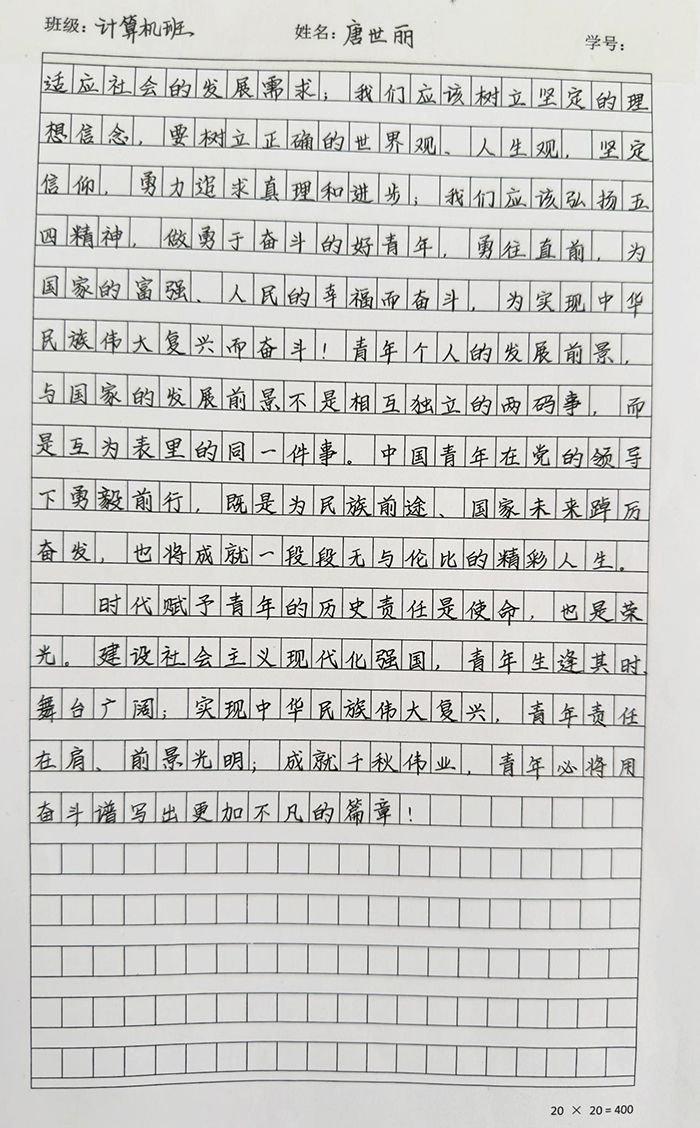 班级：计算机班 姓名：唐世丽 学号：
适应社会的发展需求；我们应该树立坚定的理
想信念，要树立正确的世界观、人生观，坚定
信仰，勇力追求真理和进步；我们应该弘扬五
四精神，做勇于奋斗的好青年，勇往直前，为
国家的富强、人民的幸福而奋斗，为实现中华
民族伟大复兴而奋斗！青年个人的发展前景，
与国家的发展前景不是相互独立的两码事，而
是互为表里的同一件事。中国青年在党的领导
下勇毅前行，既是为民族前途、国家未来踔厉
奋发，也将成就一段段无与伦比的精彩人生。
时代赋予青年的历史责任是使命，也是荣
光。建设社会主义现代化强国，青年生逢其时、
舞台广阔；实现中华民族伟大复兴，青年责任
在肩、前景光明；成就千秋伟业，青年必将用
奋斗谱写出更加不凡的篇章！
20 × 20 = 400